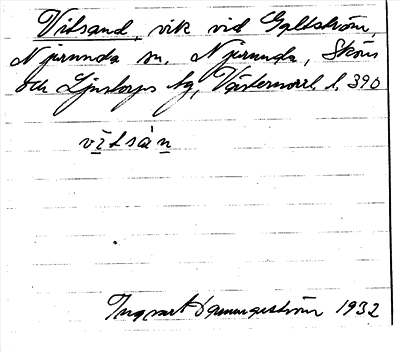 Vitsand, vik vid Galtström,
Njurunda sn, Njurunda, Sköns
och Ljustorps tg, Västernorrl. l. 390
vitsàn
Ingvart 1932